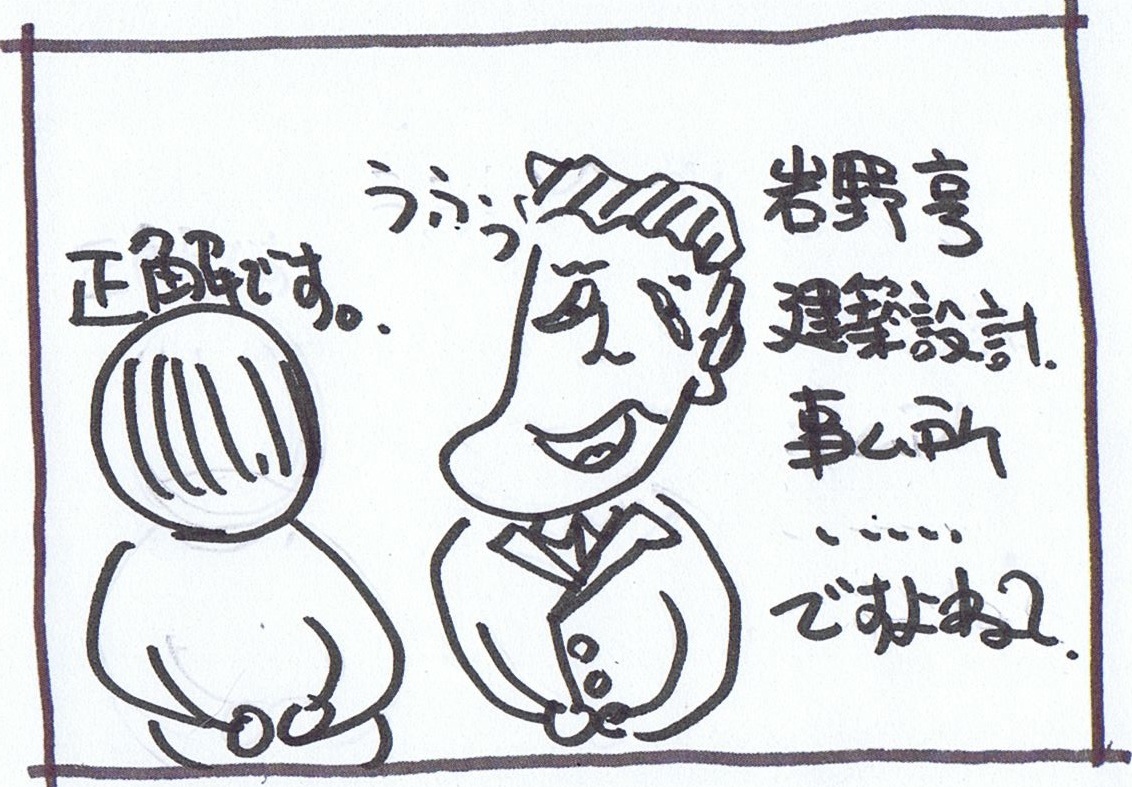 岩野亨
建築設計
事ム所
......
ですよね?
うふっ
正解です。